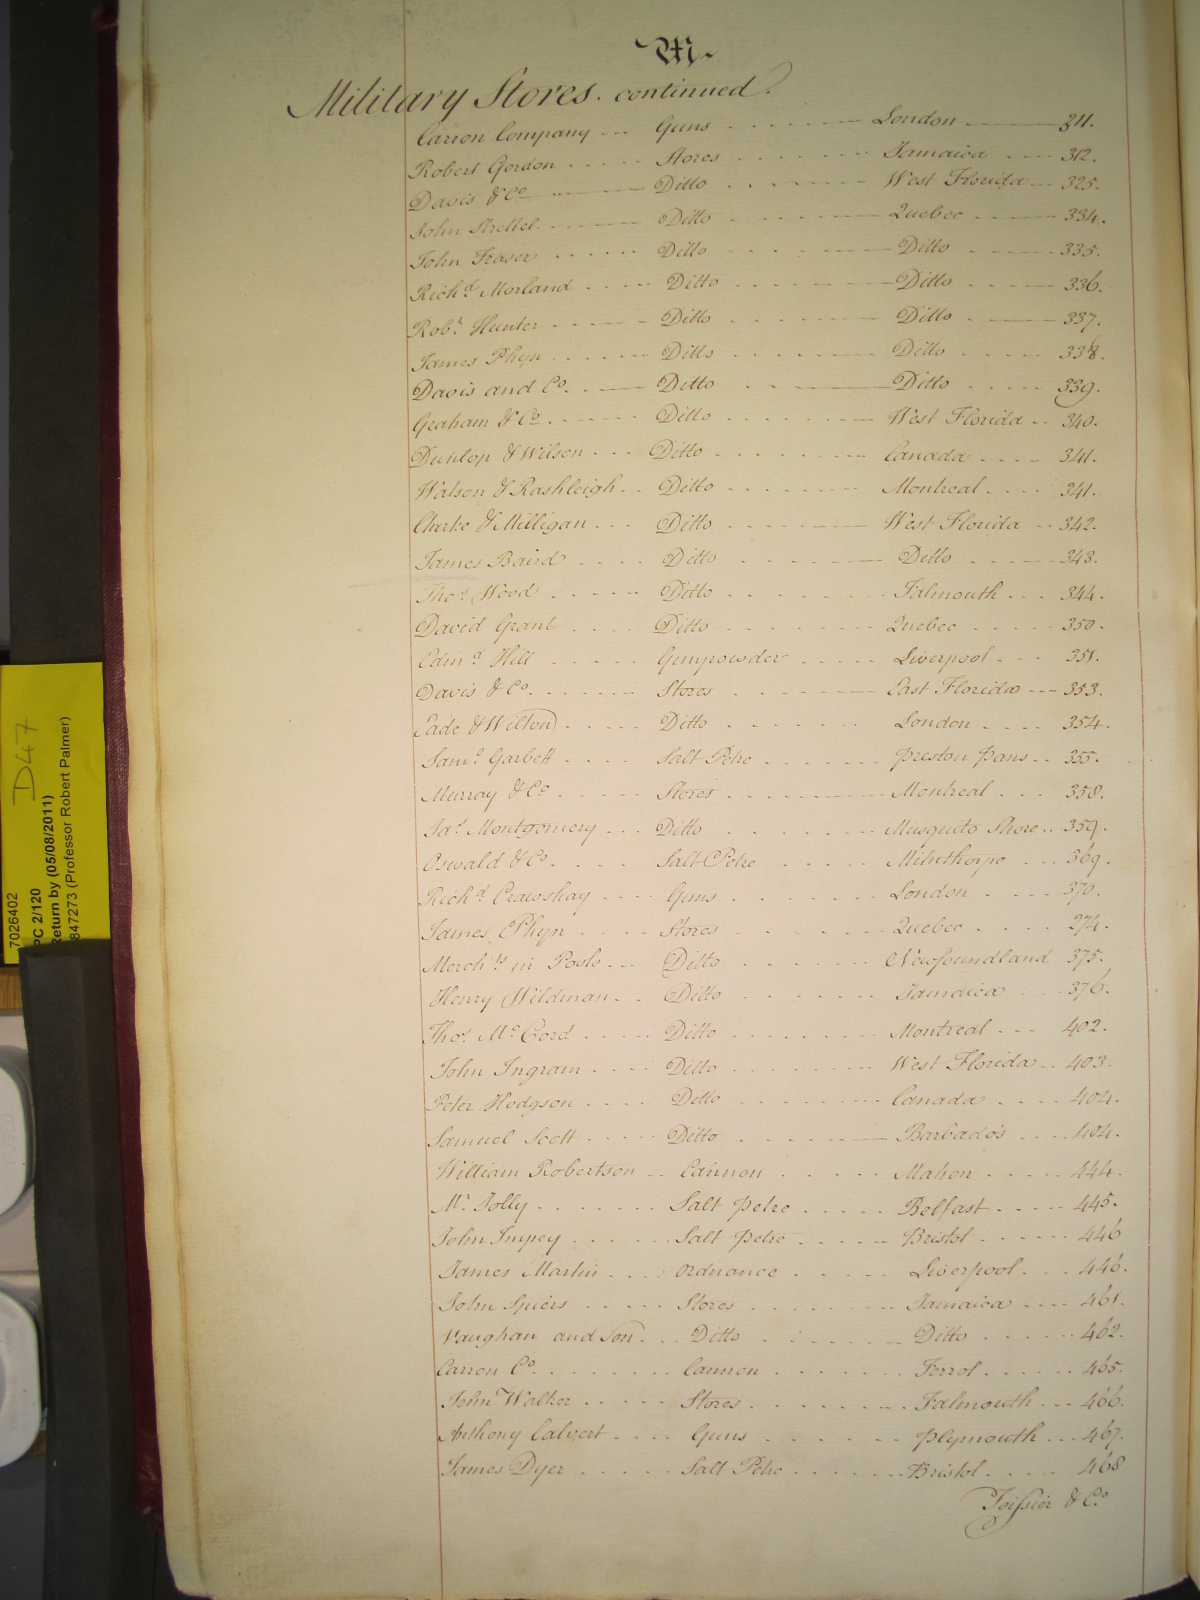 M
Military Stores. continued.
Carron Company --- Guns - - - - London - - - - 311.
Robert Gordon - - - - Stores - - - - Jamaica - - - - 312.
Davis & Co - - - - Ditto - - - - West Florida - - - - 325.
John Strettel - - - - Ditto - - - - Quebec - - - - 334.
John Fraser - - - - Ditto - - - - Ditto - - - - 335.
Richd Morland - - - - Ditto - - - - Ditto - - - - 336.
Robt Hunter - - - - Ditto - - - - Ditto - - - - 337.
James Phyn - - - - Ditto - - - - Ditto - - - - 338.
Davis and Co. - - - - Ditto - - - - Ditto - - - - 339.
Graham & Co - - - - Ditto - - - - West Florida - - 340.
Dunlop & Wilson - - - Ditto - - - - Canada - - - - 341.
Watson & Rashleigh - - Ditto - - - - Montreal - - - - 341.
Clarke & Milligan - - - Ditto - - - - West Florida - - 342.
James Baird - - - - Ditto - - - - Ditto - - - - 343.
Thos Wood - - - - Ditto - - - - Falmouth - - - 344.
David Grant - - - - Ditto - - - - Quebec - - - - 350.
Edmd Hill - - - - Gunpowder - - - - Liverpool - - - 351.
Davis & Co - - - - Stores - - - - East Florida - - - 353.
Eade & Wilton - - - - Ditto - - - - London - - - - 354.
Saml Garbett - - - - Salt Petre - - - - Preston Pans - - 355.
Murray & Co - - - - Stores - - - - Montreal - - - 358.
Jas Montgomery - - - Ditto - - - - Musquito Shore - - 359.
Oswald & Co - - - - Salt Petre - - - - Milnthorpe - - - 369.
Richd Crawshay - - - - Guns - - - - London - - - - 370.
James Phyn - - - - Stores - - - - Quebec - - - - 274.
Merchts in Poole - - - Ditto - - - - Newfoundland 375.
Henry Wildman - - Ditto - - - - Jamaica - - - 376.
Thos McCord - - - - Ditto - - - - Montreal - - - 402.
John Ingram - - - - Ditto - - - - West Florida - - 403.
Peter Hodgson - - - - Ditto - - - - Canada - - - - 404.
Samuel Scott - - - - Ditto - - - - Barbados - - - - 404.
William Robertson - - Cannon - - - - Mahon - - - - 444.
Mr Jolly - - - - Salt Petre - - - - Belfast - - - - 445.
John Impey - - - - Salt Petre - - - - Bristol - - - - 446
James Martin - - - - Ordnance - - - - Liverpool - - - 446.
John Spiers - - - - Stores - - - - Jamaica - - - - 461.
Vaughan and Son - - - Ditto - - - - Ditto - - - - 462.
Carron Co - - - - Cannon - - - - Ferrol - - - - 465.
John Walker - - - - Stores - - - - Falmouth - - - 466.
Anthony Calvert - - - - Guns - - - - Plymouth - - - 467.
James Dyer - - - - Salt Petre - - - - Bristol - - - - 468
Teissier & Co
D47
7026402
PC 2/120
Return by (05/08/2011)
847273 (Professor Robert Palmer)
FUSED